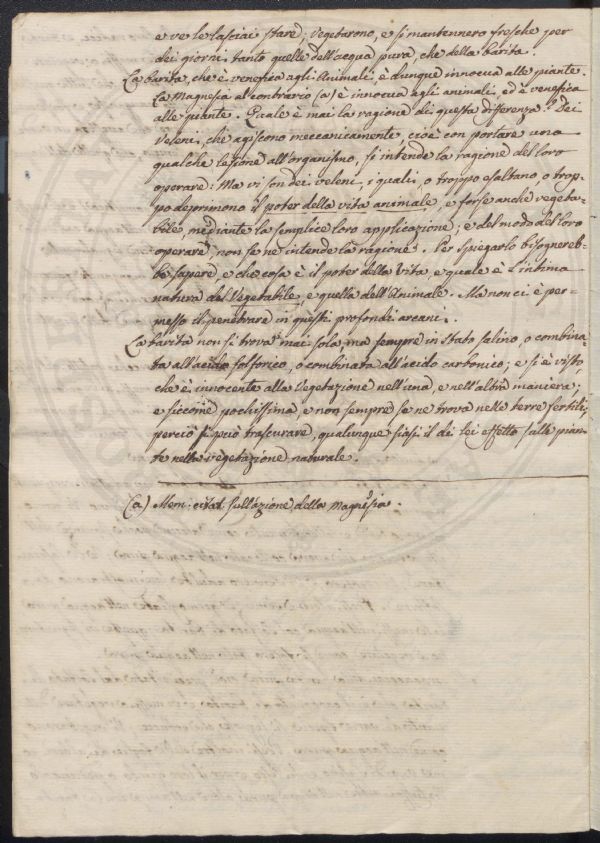 e ve le lasciai stare; vegetarono, e si mantennero fresche per
dei giorni tanto quelle dell'acqua pura, che della barita.
La barita, che è venefica agli Animali, è dunque innocua alle piante.
La Magnesia al contrario (a) è innocua agli animali, ed è venefica
alle piante. Quale è mai la ragione di questa differenza? Dei
Veleni, che agiscono meccanicamente, cioè con portare una
qualche lesione all'organismo, s'intende la ragione del loro
operare. Ma vi son dei veleni, i quali, o troppo esaltano, o trop-
po deprimono il poter della vita animale, e forse anche vegeta-
bile, mediante la semplice loro applicazione; e del modo del loro
operare, non se ne intende la ragione. Per spiegarlo bisognereb-
be sapere e che cosa è il poter della Vita, e quale è l'intima
natura del Vegetabile, e quella dell'Animale. Ma non ci è per-
messo il penetrare in questi profondi arcani.
La barita non si trova mai sola, ma sempre in stato salino, o combina-
ta all'acido solforico, o combinata all'acido carbonico; e si è visto,
che è innocente alla Vegetazione nell'una, e nell'altra maniera;
e siccome pochissima, e non sempre se ne trova nelle terre fertili,
perciò si può trascurare, qualunque siasi il di lei effetto sulle pian-
te nella vegetazione naturale.
(a) Mem. citat. sull'azione della Magnesia.